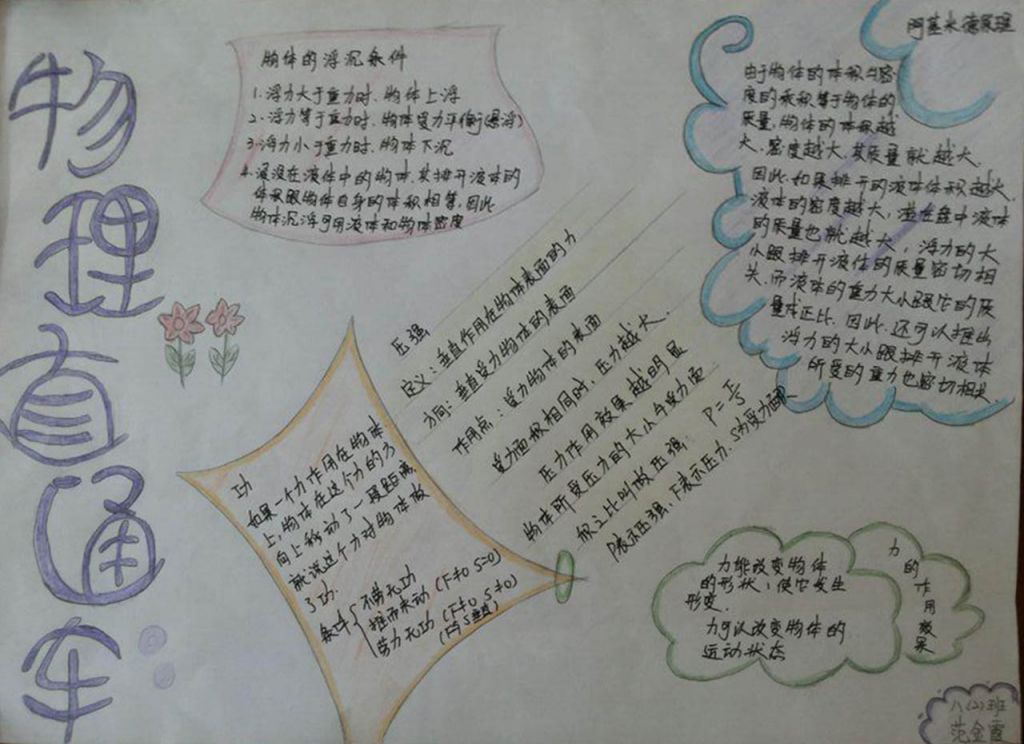 物理直通车
物体的浮沉条件
1.浮力大于重力时.物体上浮
2.浮力等于重力时.物体受力平衡(悬浮)
3.浮力小于重力时.物体下沉
4.浸没在液体中的物体.其排开液体的
体积跟物体自身的体积相等.因此
物体沉浮可用液体和物体密度
阿基米德原理
由于物体的体积与密
度的乘积等于物体的
质量.物体的体积越
大.密度越大.其质量就越大.
因此.如果排开的液体体积越大.
液体的密度越大,溢在盘中液体
的质量也就越大,浮力的大
小跟排开液体的质量密切相
关.而液体的重力大小跟它的质
量成正比.因此.还可以推出
浮力的大小跟排开液体
所受的重力也密切相关.
压强
定义:垂直作用在物体表面的力
方向:垂直受力物体的表面
作用点:受力物体的表面
受力面积相同时,压力越大.
压力作用效果越明显
物体所受压力的大小与受力面
积之比叫做压强: P=F/S
P表示压强,F表示压力.S为受力面
功
如果一个力作用在物体
上,物体在这个力的方
向上移动了一段距离.
就说这个力对物体做
了功.
不劳无功
推而未动(F≠0 S=0)
劳力无功(F≠0 S≠0)
(F与S垂直)
力的作用效果
力能改变物体
的形状,使它发生
形变.
力可以改变物体的
运动状态
八(2)班
范金霞